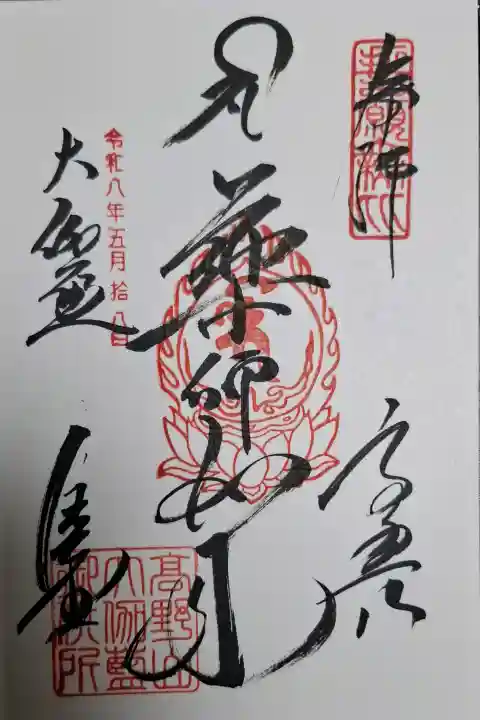 奉拝
高野山
薬師如来
令和八年五月拾八日
大伽藍
高野山
大伽藍
御供所